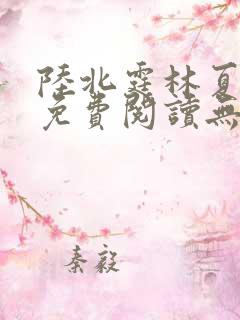 陸北霆林夏
免費閱讀無
秦毅